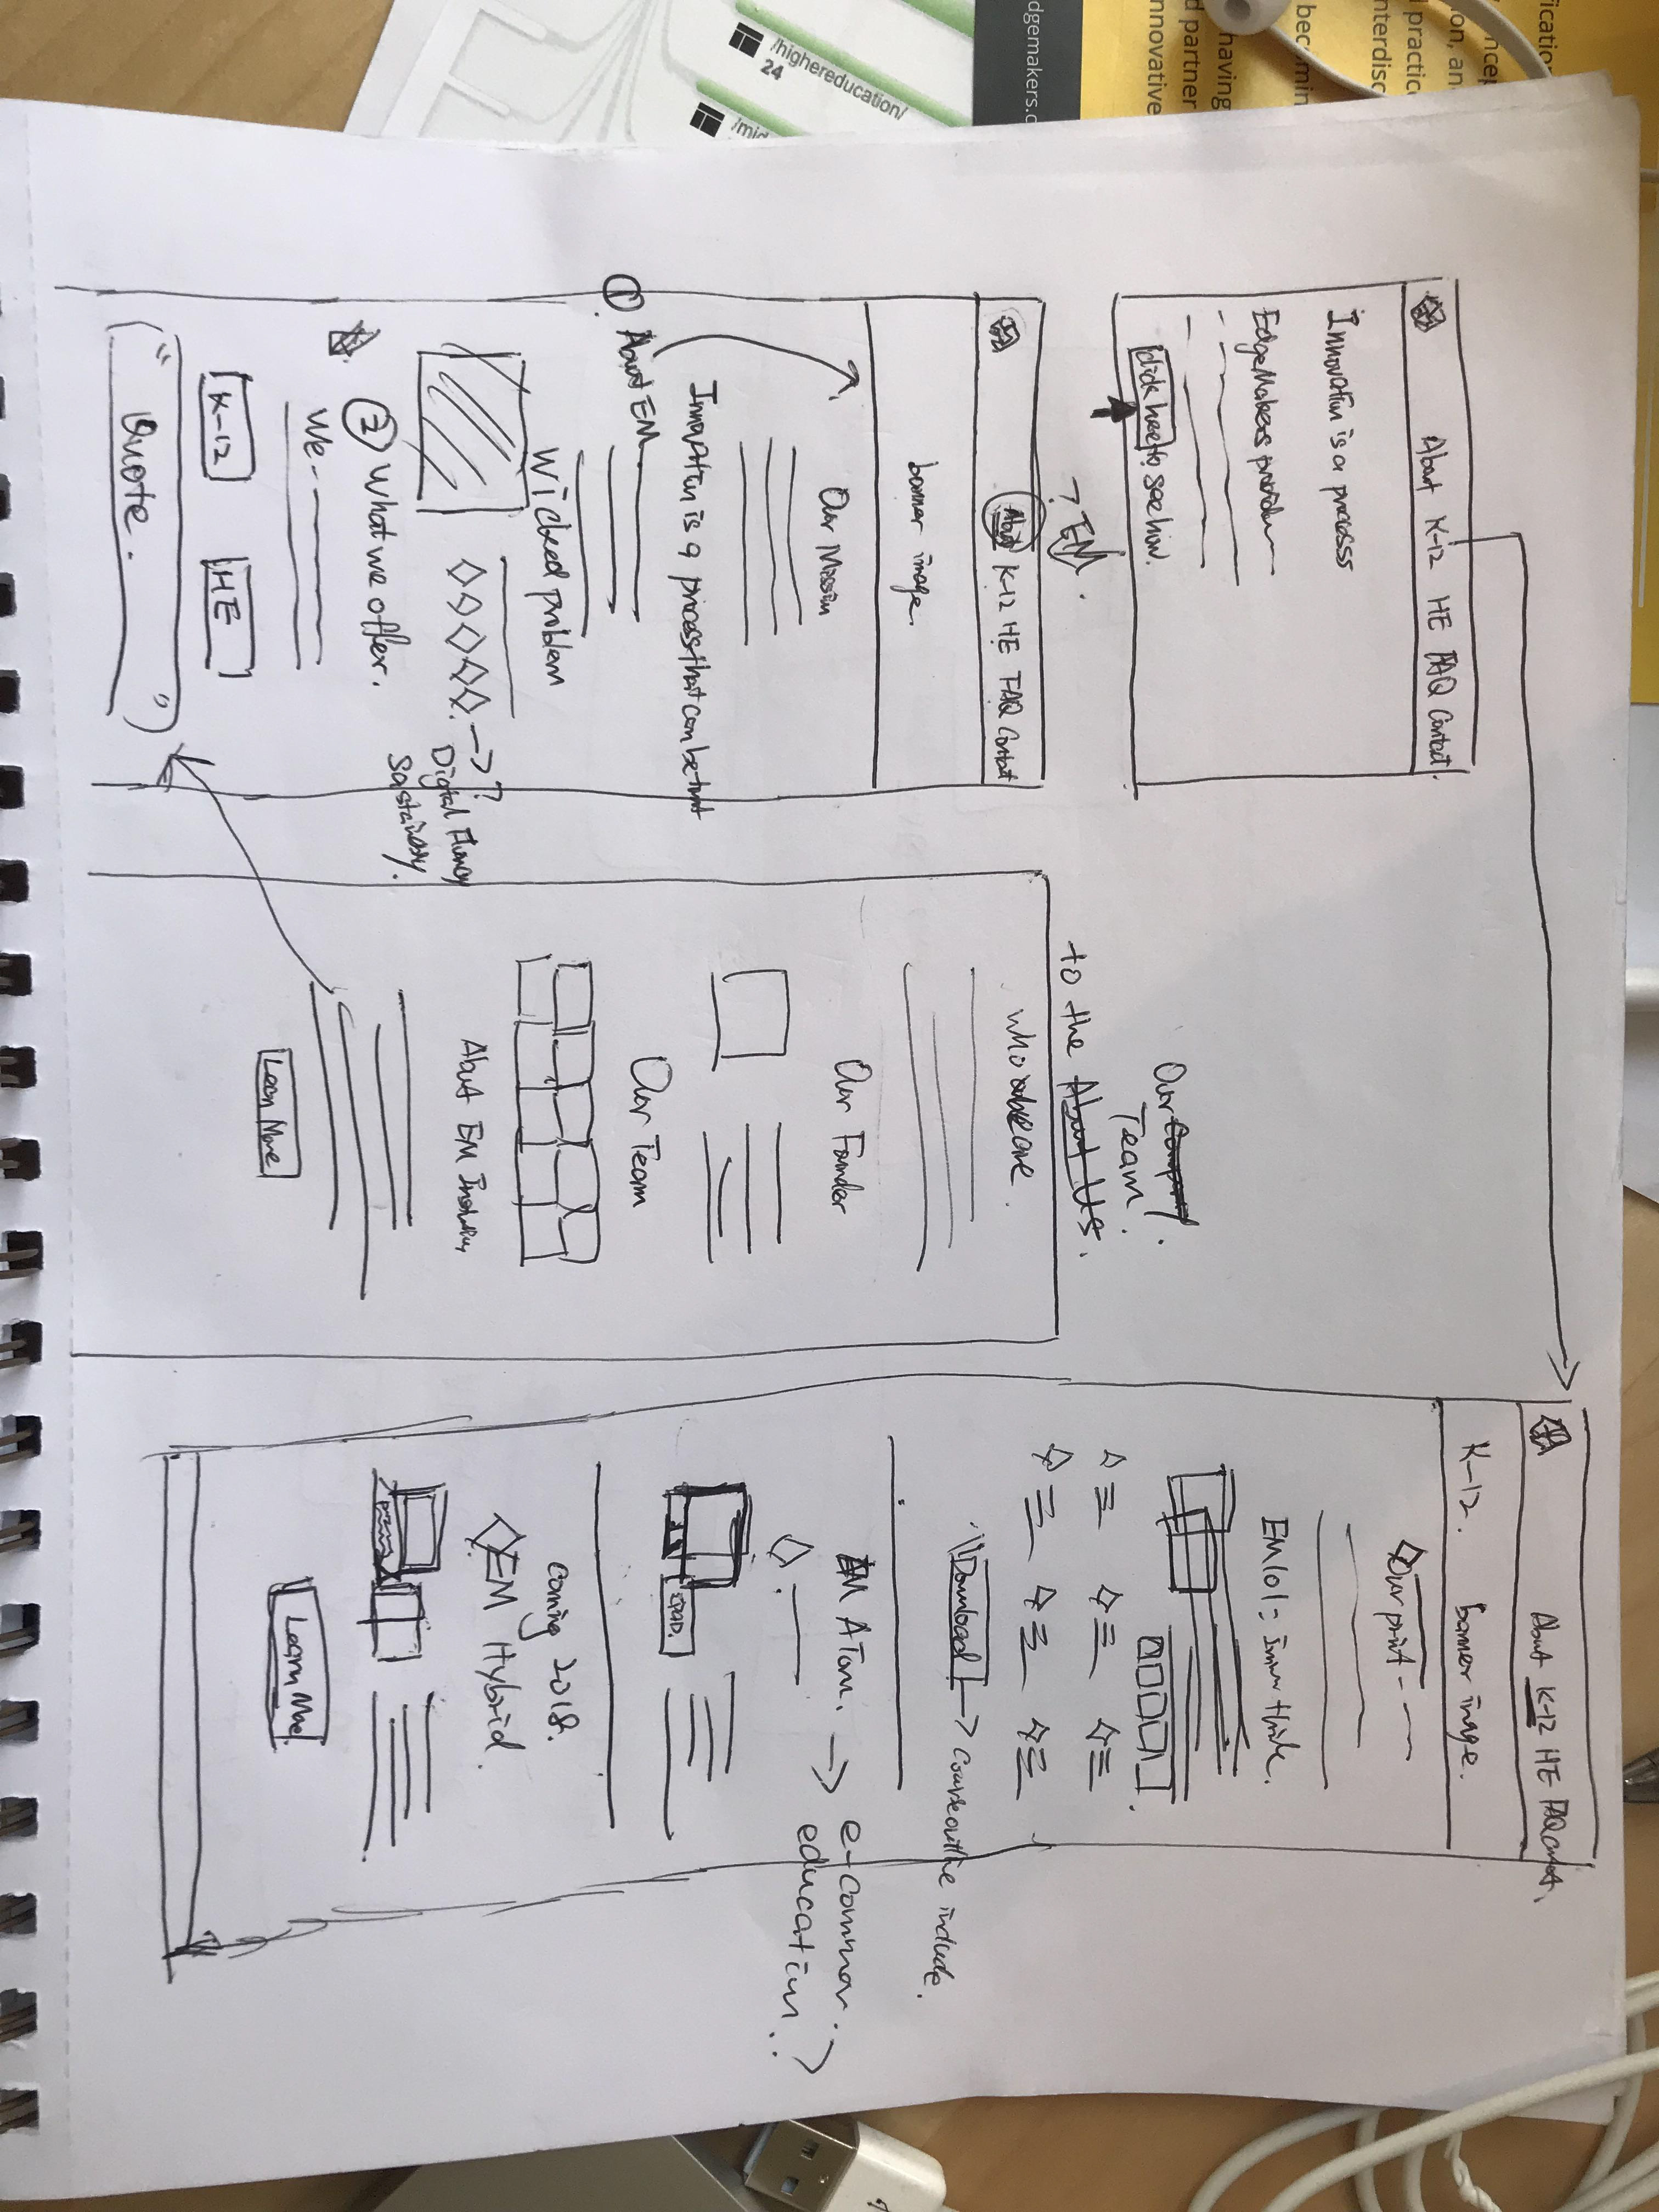 /highereducation/
24
/mid
dgemakers.c
having
d partner
nnovative
becomin
nterdisc
practic
on, an
ficatio
About K-12 HE FAQ Contact.
Innovation is a process
EdgeMakers provide
click here to see how.
? EM.
About K-12 HE FAQ Contact
banner image.
Our Mission
Innovation is a process that can be taught
① About EM
Wicked problem
→ ?
Digital Fluency
② What we offer.
We
K-12 HE
“ Quote. ”
Our Company.
Team.
to the About Us.
who we are.
Our Founder
Our Team
About EM
Learn More
About K-12 HE FAQ Contact
K-12. banner image.
Our print
EM101:
Download → Course outline include.
EM Atom. → e-commer.
education. ?
IPAD.
Coming 2018.
EM Hybrid.
Learn More